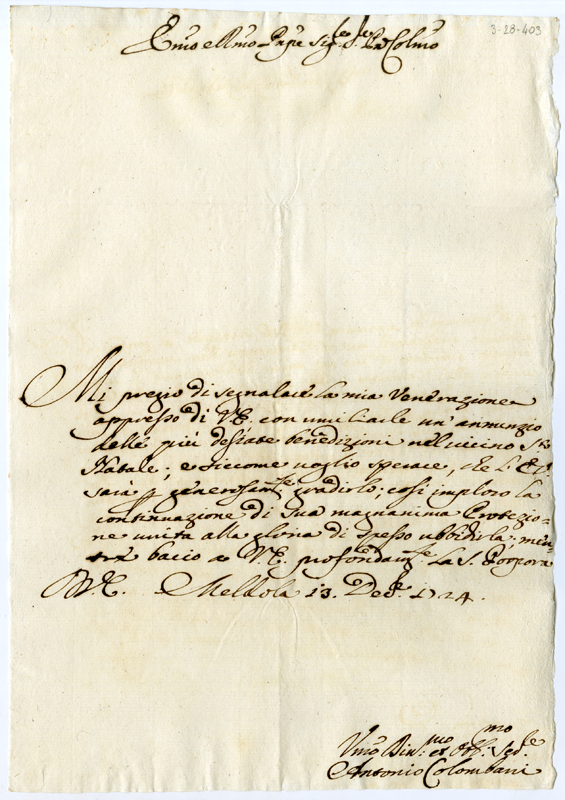 3-28-403
Emo e Rmo Prpe Sig.re Sig.re Pne Colmo
Mi pregio di segnalare la mia Venerazione
appresso di V.E. con umiliarle un' annunzio
delle più desiate benedizioni nel vicino S.to
Natale; e siccome voglio sperare, che l'E.V.
sarà p generosam.te gradirlo; così imploro la
continuazione di sua magnanima Protezio-
ne unita alla gloria di spesso ubbidirla; men-
tre bacio a V.E. profondam.te la S. Porpora
D.V.E. Meldola 13. Dec.e 1724.
Vmo Div.mo et Obb.mo Ser.re
Antonio Colombani